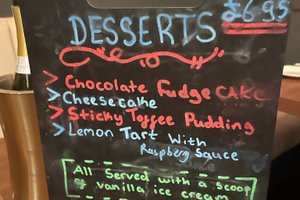 DESSERTS £6.95
> Chocolate Fudge CAKE
> Cheesecake
> Sticky Toffee Pudding
> Lemon Tart With
Raspberry Sauce
All Served with a scoop
of vanilla ice cream